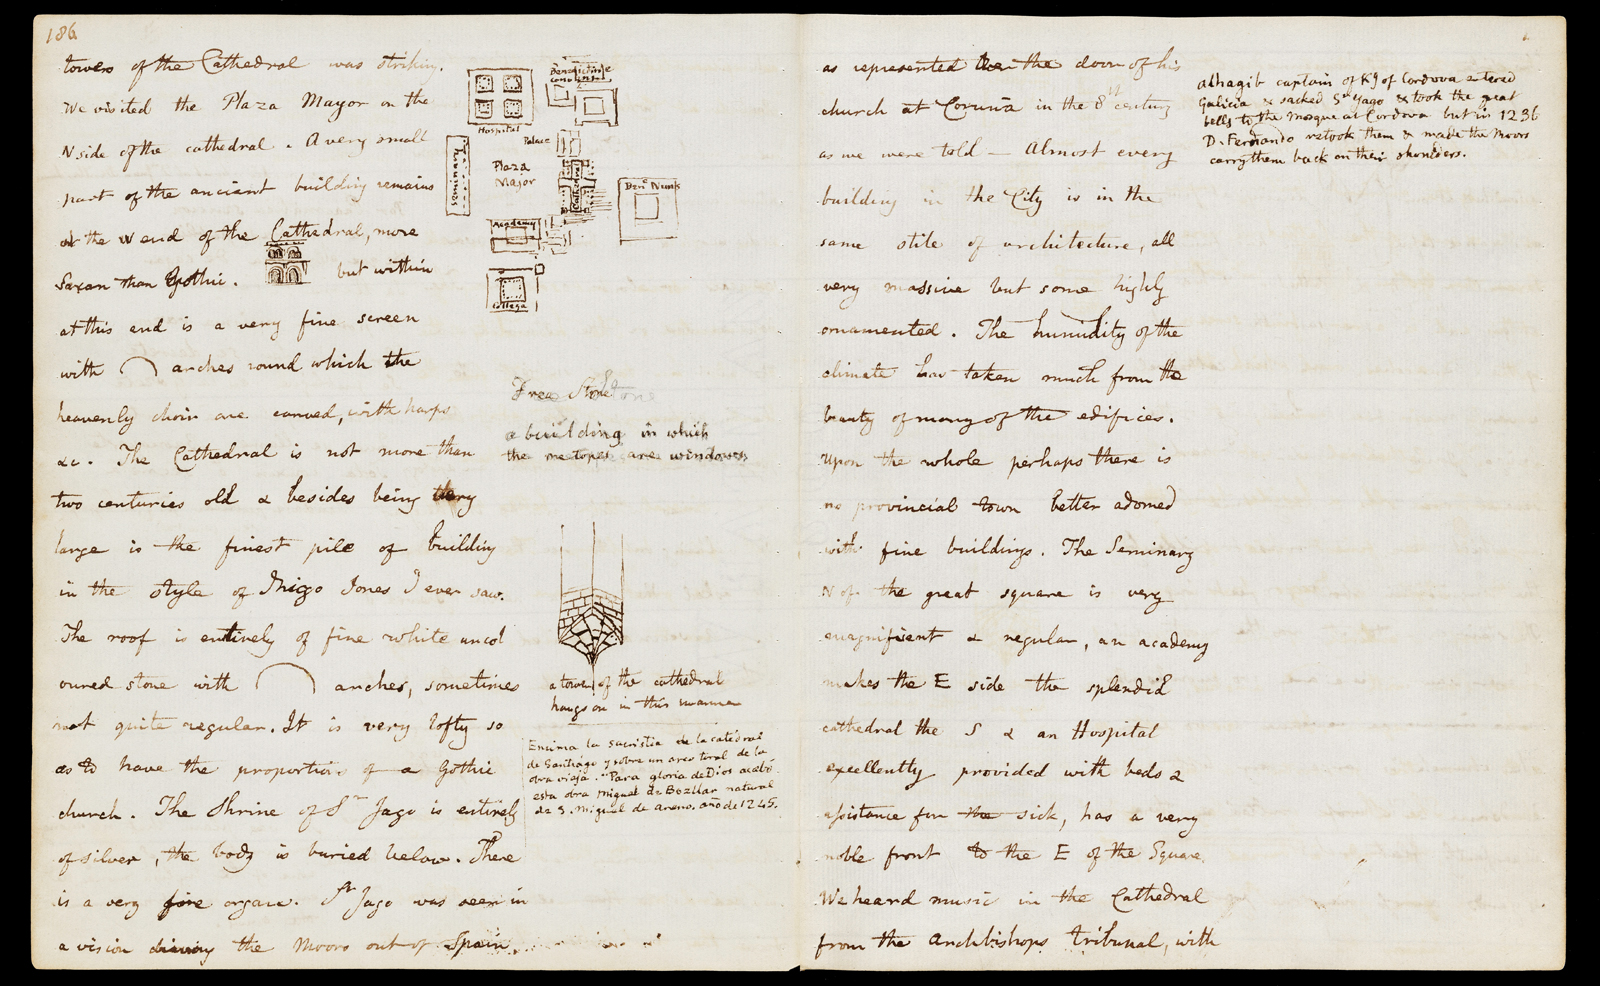 186
towers of the Cathedral was striking.
We visited the Plaza Mayor on the
N side of the cathedral. A very small
part of the ancient building remains
at the W end of the Cathedral, more
Saxon than Gothic. but within
at this end is a very fine screen
with arches round which the
heavenly choir are carved, with harps
&c. The Cathedral is not more than
two centuries old & besides being very
large is the finest pile of building
in the style of Inigo Jones I ever saw.
The roof is entirely of fine white uncol
oured stone with arches, sometimes
not quite regular. It is very lofty so
as to have the proportions of a Gothic
church. The Shrine of St Jago is entirely
of silver, the body is buried below. There
is a very fine organ. St Jago was seen in
a vision driving the Moors out of Spain
Benedictine
convent
Hospital
Palace
Plaza
Mayor
Benn Nuns
Academy
College
Free Stone
a building in which
the metopes are windows
a tower of the cathedral
hangs on in this manner
Encima la sacristia de la catedral
de Santiago y sobre un arco toral de la
obra vieja. "Para gloria de Dios acabó
esta obra Miguel de Bozllar natural
de S. Miguel de Areno. año de 1245.
as represented the door of his
church at Coruña in the 8th century
as we were told – Almost every
building in the City is in the
same stile of architecture, all
very massive but some highly
ornamented. The humidity of the
climate has taken much from the
beauty of many of the edifices.
Upon the whole perhaps there is
no provincial town better adorned
with fine buildings. The Seminary
N of the great square is very
magnificent & regular, an academy
makes the E side the splendid
cathedral the S & an Hospital
excellently provided with beds &
assistance for the sick, has a very
noble front to the E of the Square.
We heard music in the Cathedral
from the Archbishops tribunal, with
Alhagib captain of Kg of Cordova entered
Galicia & sacked St Yago & took the great
bells to the mosque at Cordova but in 1236
D. Fernando retook them & made the Moors
carry them back on their shoulders.